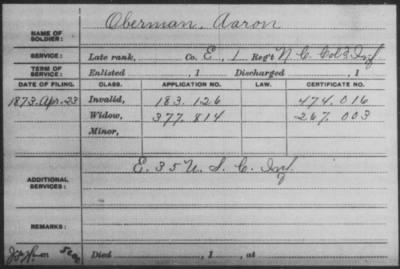 Oberman, Aaron
NAME OF SOLDIER:
SERVICE: Late rank, Co. E, 1 Reg't N. C. Col'd Inf
TERM OF SERVICE: Enlisted , 1 Discharged , 1
DATE OF FILING. CLASS. APPLICATION NO. LAW. CERTIFICATE NO.
1873, Apr. 23 Invalid, 183.126 474.016
Widow, 377.814 267.003
Minor,
ADDITIONAL SERVICES: E. 35 U. S. C. Inf
REMARKS:
Died , 1 , at